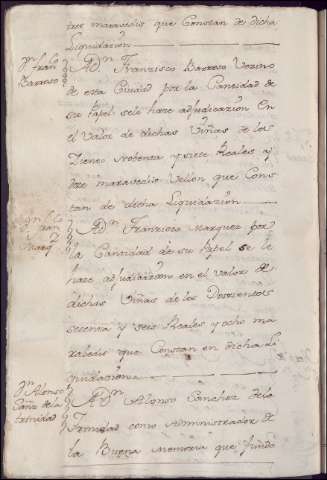 tres maravedis que Constan de dicha
Liquidazion
Dn Franco
Barroso
A Dn Francisco Barroso Vezino
de esta Ciudad por la Cantidad de
su Papel se le haze adjudicazion En
el Valor de dichas Viñas de los
Zientto Nobenta y siete Reales y
tres maravedis Vellon que Cons
tan de dicha Liquidazion
Fran
Marqz
A Dn Francisco Marquez por
la Cantidad de su Papel se le
haze adjudicazion en el valor de
dichas Viñas de los Doszientos
setenta y seis Reales y ocho ma
rabedis que Constan en dicha Li
quidazion
Dn Alonso
Sanz de la
trinidad
A Dn Alonso Sanchez de la
Trinidad como Administrador de
la Buena memoria que fundo